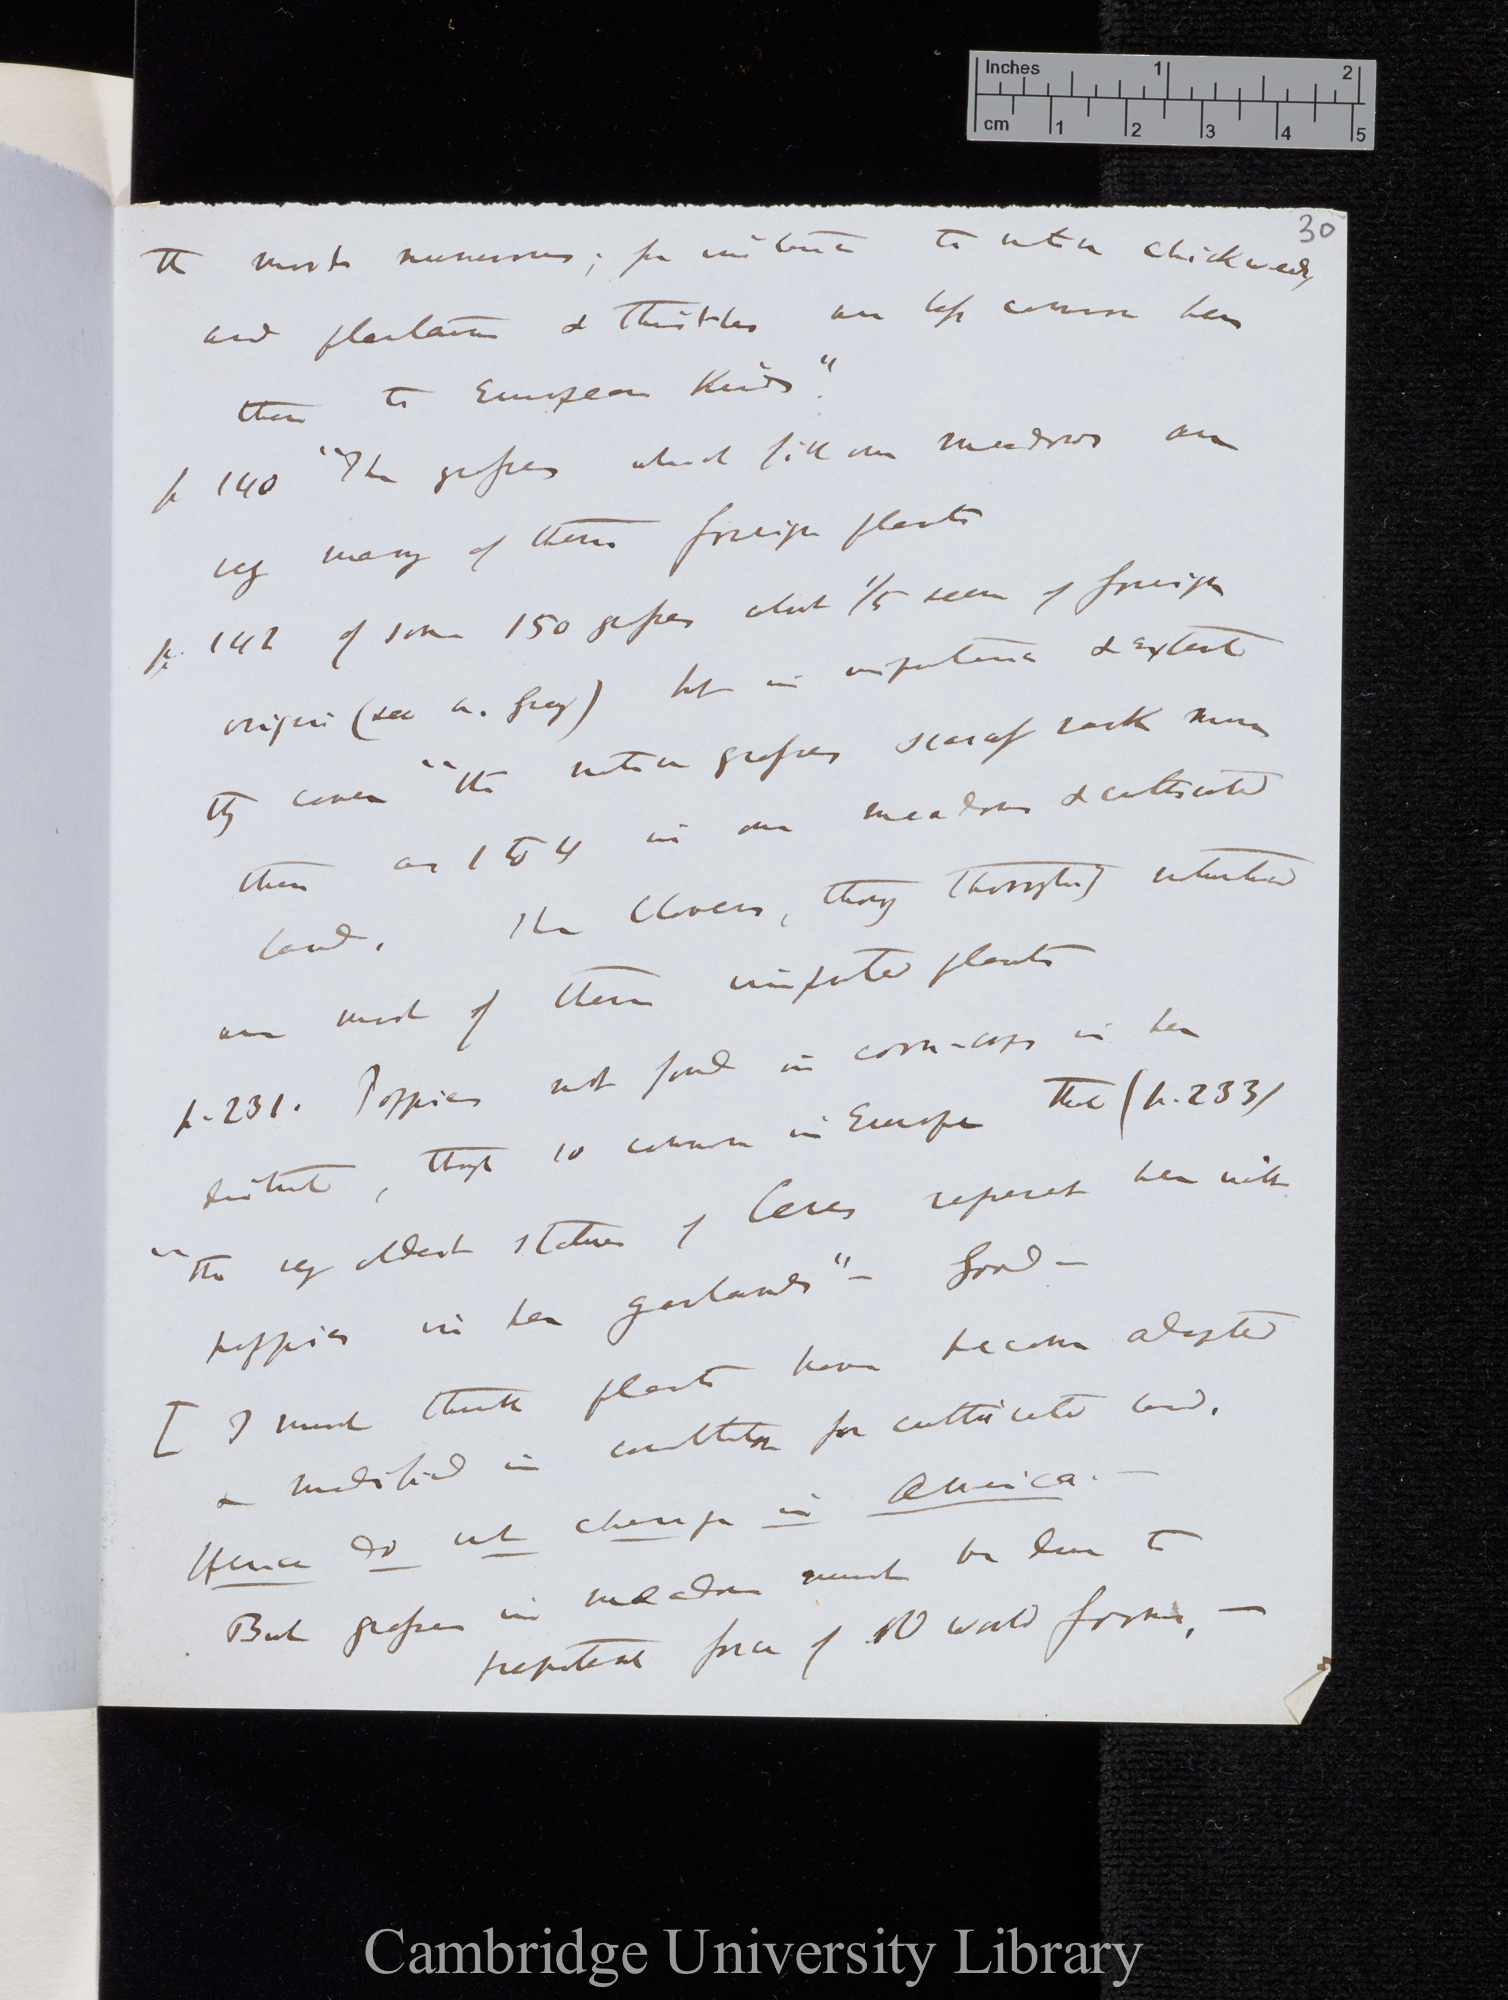 Inches 1 2
cm 1 2 3 4 5
30
the most numerous; for instance the native chickweeds
and plantains & thistles are less common here
than the European kinds".
p 140 "The grasses which fill our meadows are
very many of them foreign plants
p. 142 of some 150 grasses about 1/5 seem of foreign
origin (see A. Gray) but in importance & extent
they cover "the native grasses scarcely rank more
than as 1 to 4 in our meadows & cultivated
land. The Clovers, though thoroughly naturalised
are most of them imported plants
p. 231. Poppies not found in corn-crops in her
district, though so common in Europe that (p. 233)
"the very oldest statues of Ceres represent her with
poppies in her garlands" — Good —
[ I must think plants have become adapted
& modified in constitution for cultivated land.
Hence do not change in America. —
But grasses in meadows must be due to
prepotent force of old world forms, —
Cambridge University Library